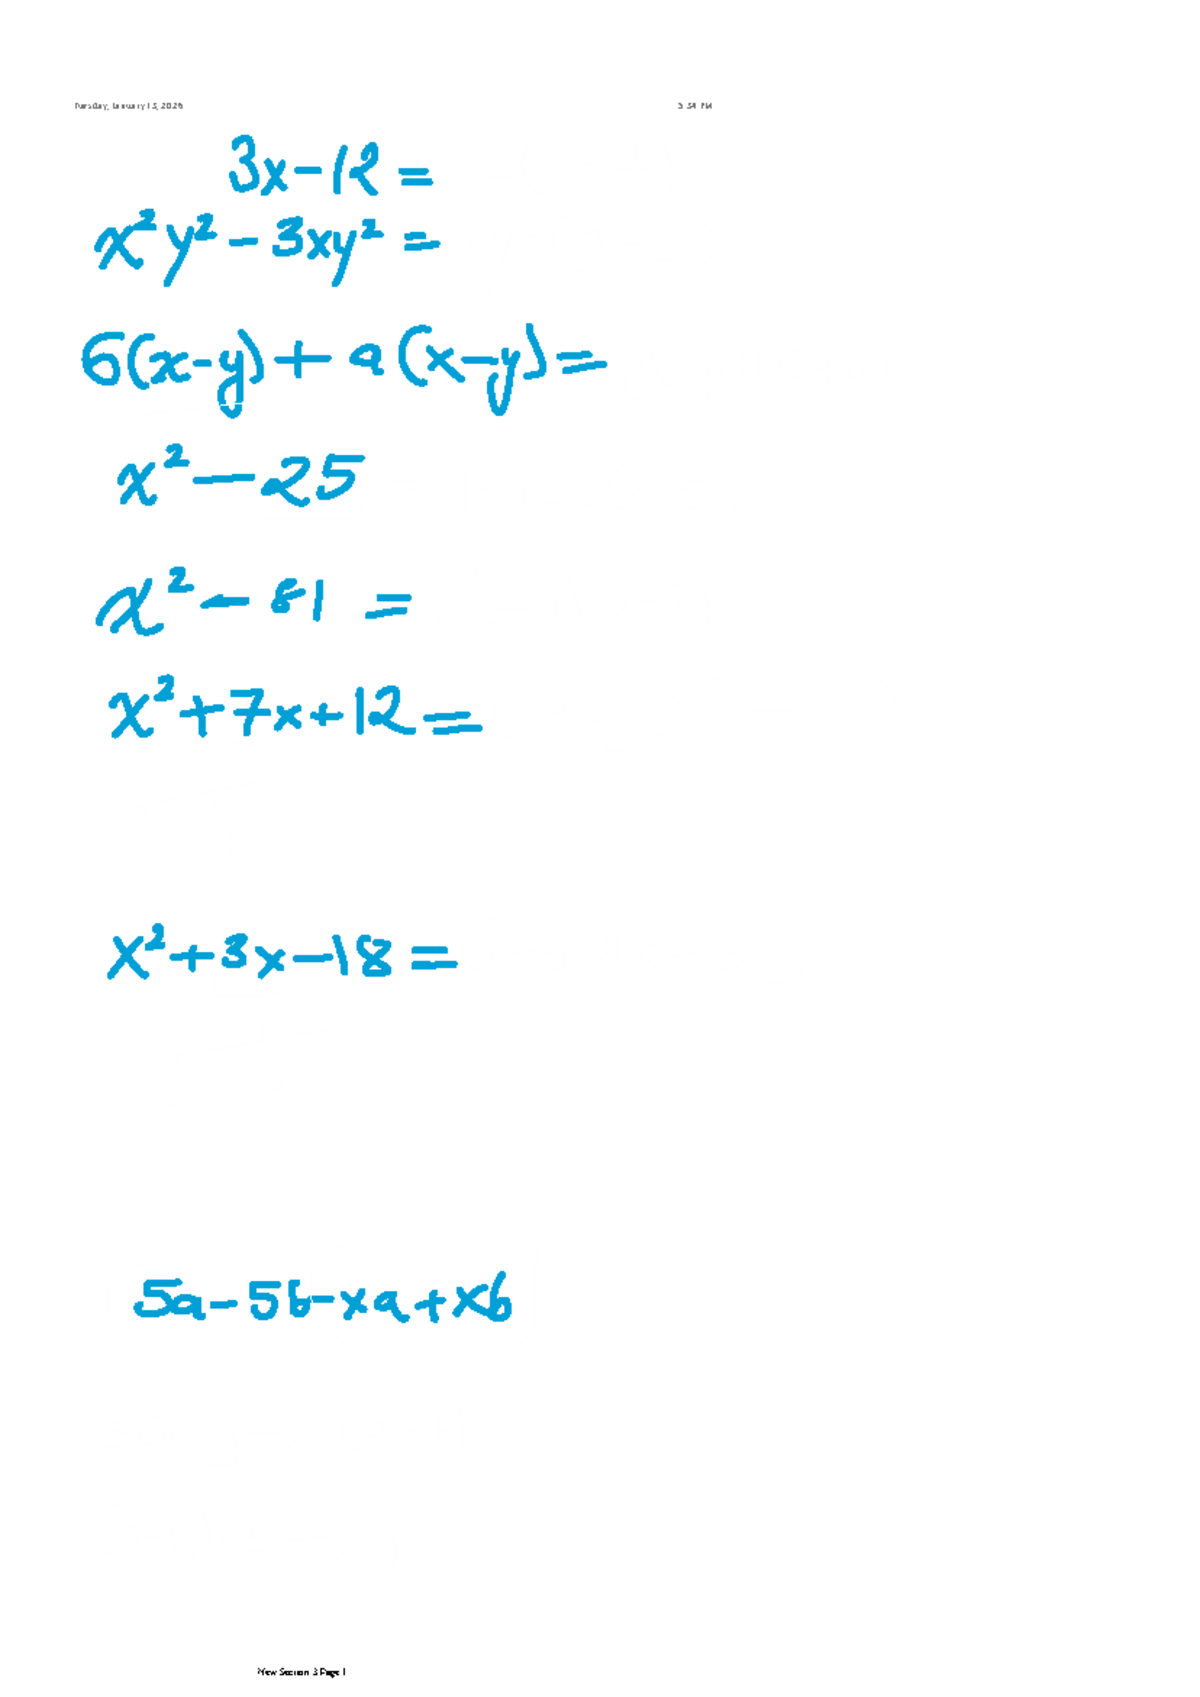 Tuesday, January 13, 2026 5:54 PM
3x-12=
x²y²-3xy²=
6(x-y)+a(x-y)=
x²-25
x²-81=
x²+7x+12=
x²+3x-18=
5a-5b-xa+xb
New Section 3 Page 1